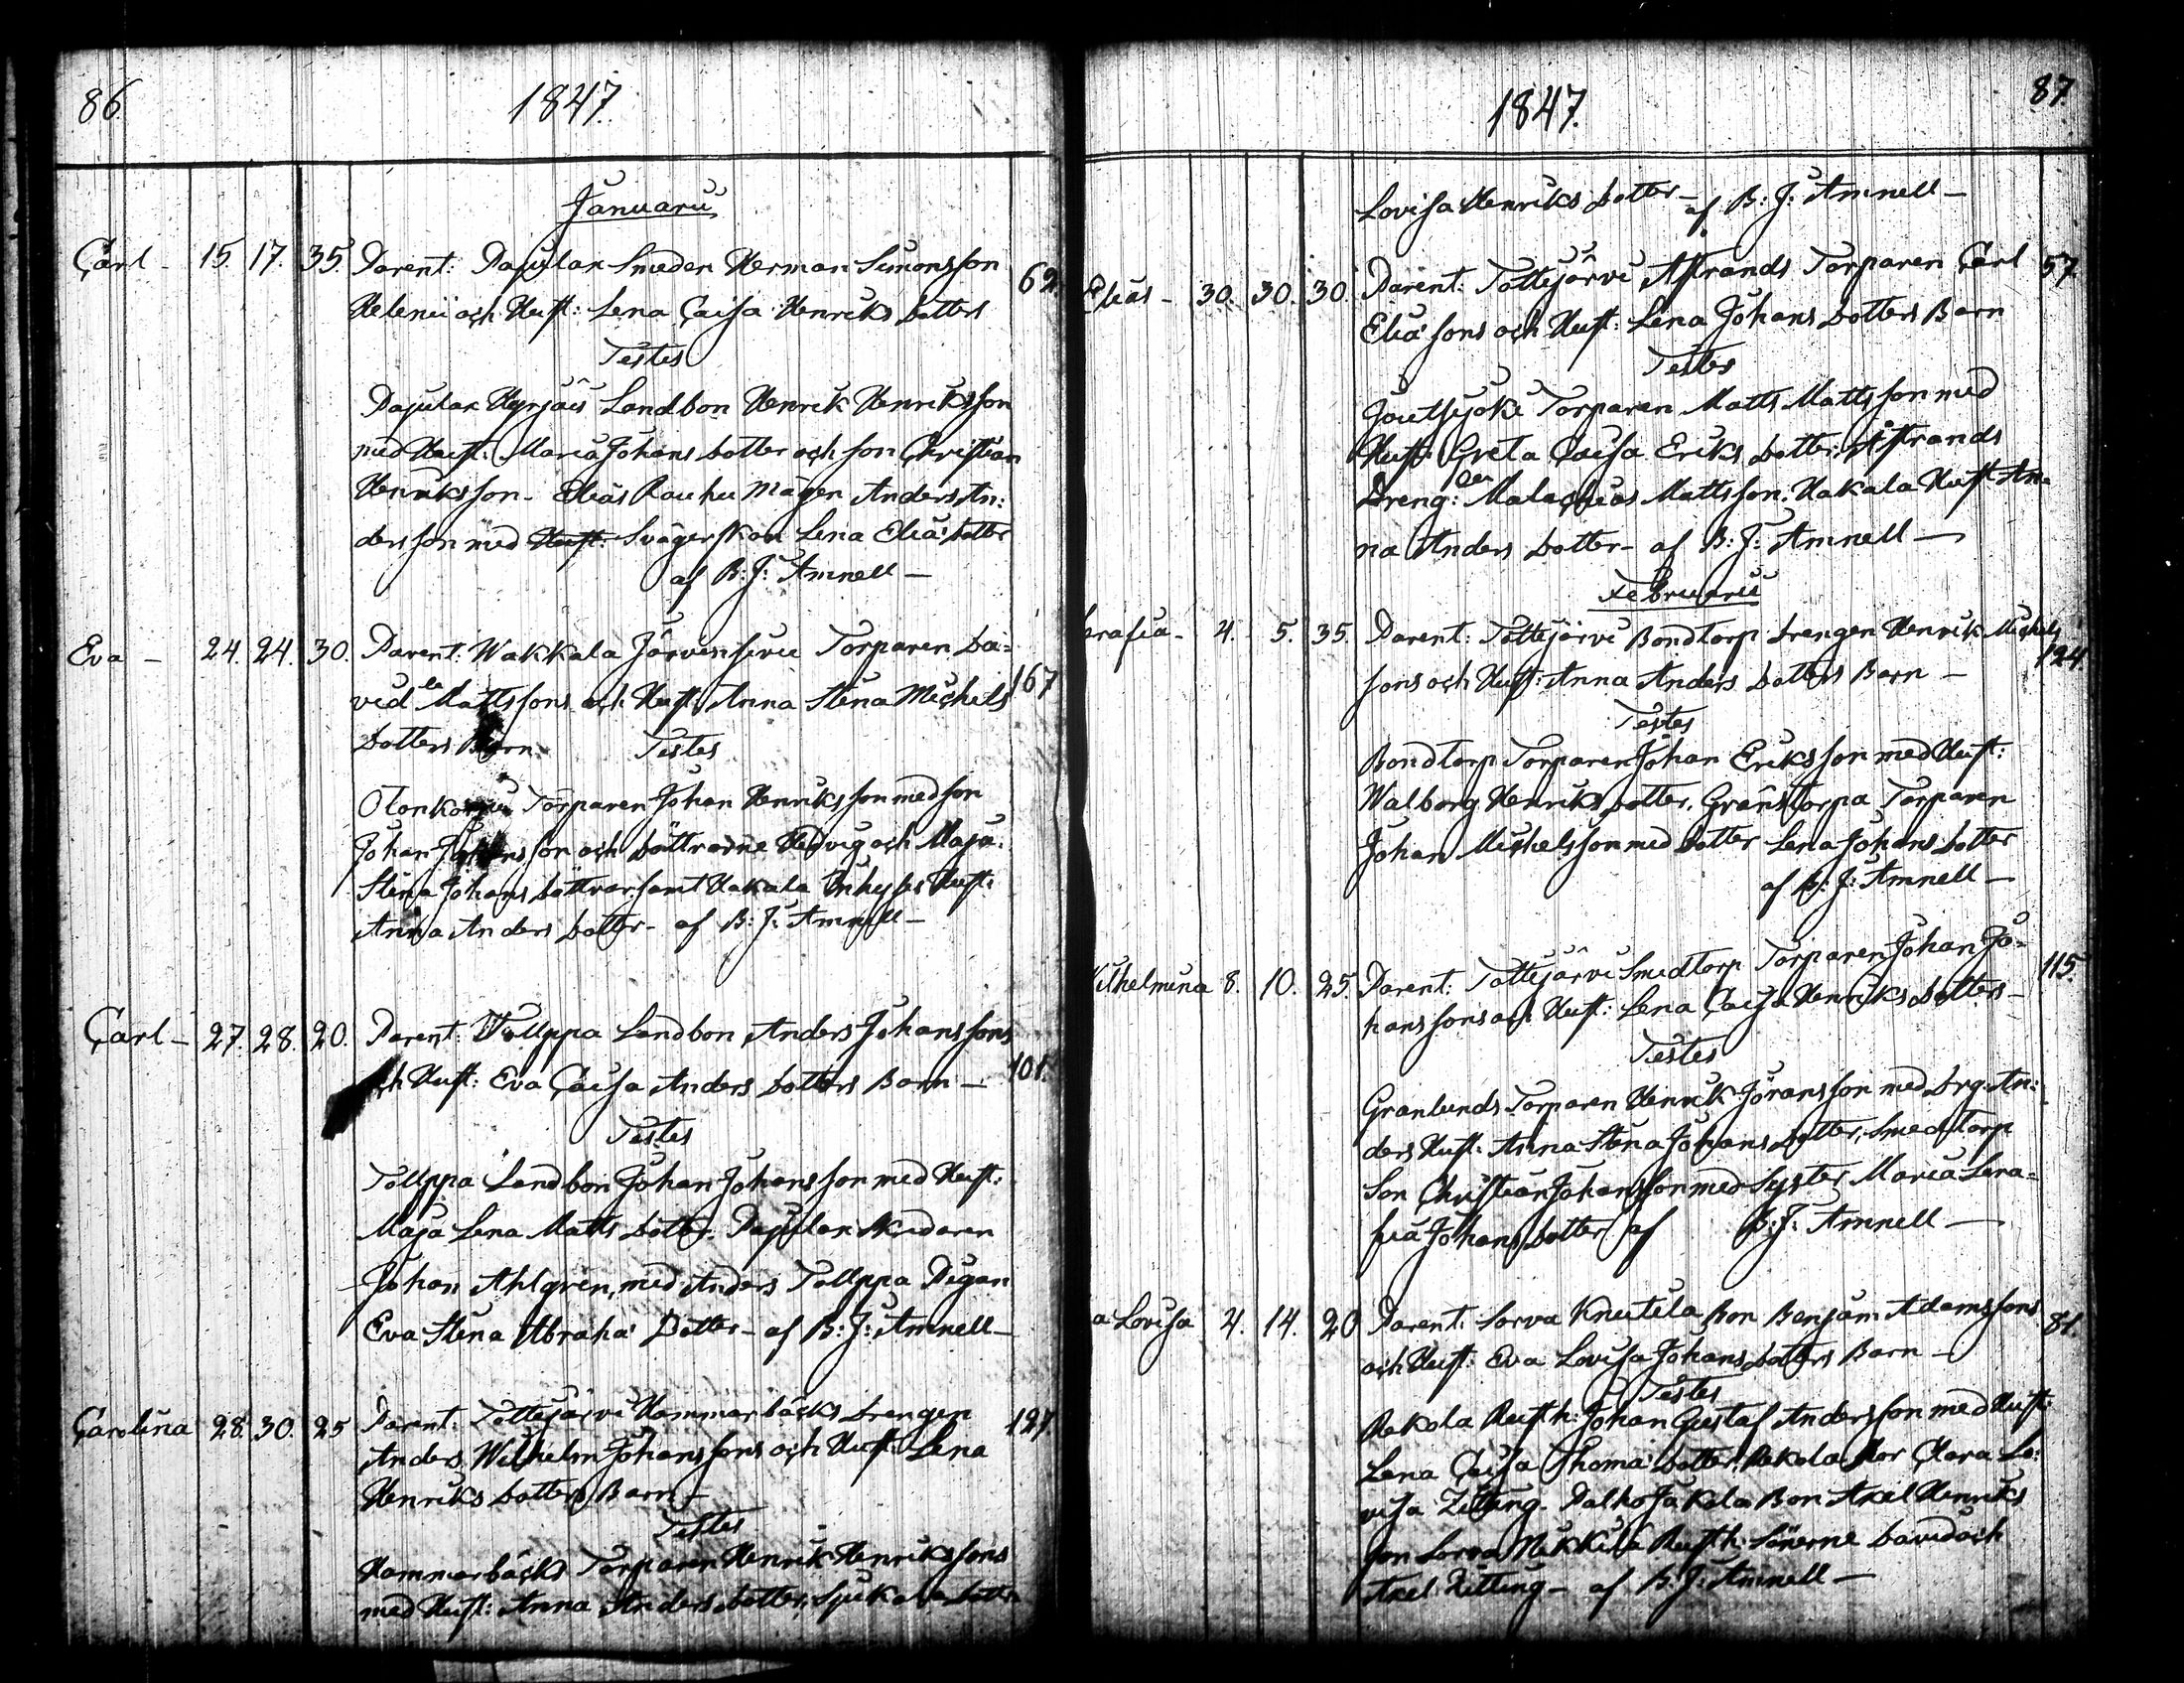 86.
1847.
Januarii
Carl - 15. 17. 35. Parent: Pajulax Smeden Herman Simonsson 62.
Helenii och Hust: Lena Caisa Henriks dotters
Testes
Pajulax Landbon Henrik Henriksson
med Hust: Maria Johans dotter och son Christian
Henriksson. Elias Rauhu mågen Anders An:
dersson med Hust: Svägerskan Lena Eliæ dotter
af B: J: Amnell -
Eva - 24. 24. 30. Parent: Wakkala Järvensivu Torparen Da= 167
vid Mattssons och Hust: Anna Stina Michels
dotters Barn Testes
Torparen Johan Henriksson med son
Johan Johansson och döttrarne Hedvig och Maja
Stina Johans döttrar samt Hakala Inhyses Hust:
Anna Anders dotter - af B: J: Amnell -
Carl - 27. 28. 20. Parent: Tollppa Landbon Anders Johanssons
och Hust: Eva Caisa Anders dotters Barn - 101.
Testes
Tollppa Landbon Johan Johansson med Hust:
Maja Lena Matts dotter. Pajulax
Johan Ahlgren, med Anders Tollppa Pigan
Eva Stina Abraha Dotter - af B: J: Amnell -
Carolina 28. 30. 25 Parent: Tottijärvi Hammarbäcks drengen 127.
Anders Wilhelm Johanssons och Hust: Lena
Henriks dotters Barn -
Testes
Hammarbäcks Torparen Henrik Henrikssons
med Hust: Anna Anders dotter,
1847.
87.
Lovisa Henriks dotter - af B: J: Amnell -
Elias - 30. 30. 30. Parent: Tottijärvi Åstrands Torparen Carl 57.
Eliæ sons och Hust: Lena Johans dotters Barn
Testes
Joutsijoki Torparen Matts Mattsson med
Hust: Greta Caisa Eriks dotter, Åstrands
Dreng: Malachias Mattsson. Hakala Hust An=
na Anders dotter - af B: J: Amnell -
Februarii
erafia - 4. 5. 35. Parent: Tottijärvi Bondtorp drengen Henrik Michels
sons och Hust: Anna Anders dotters Barn - 124
Testes
Bondtorp Torparen Johan Eriksson med Hust:
Walborg Henriks dotter, Gränstorpa Torparen
Johan Michelsson med dotter Lena Johans dotter
af B: J: Amnell -
Wilhelmina 8. 10. 25. Parent: Tottijärvi Smedtorp Torparen Johan Jo= 115.
hanssons och Hust: Lena Caisa Henriks dotters -
Testes
Granlunds Torparen Henrik Göransson med drg: An:
ders Hust: Anna Stina Johans dotter, Smedtorp
Son Christian Johansson med Syster Maria Sera=
fia Johans dotter af B: J: Amnell -
a Lovisa 4. 14. 20 Parent: Sorva Knutila Bon Benjam Adamssons 81.
och Hust: Eva Lovisa Johans dotters Barn -
Testes
Rekola Rusth: Johan Gustaf Andersson med Hust:
Lena Caisa Thomæ dotter, Rekola Mor Clara Lo:
visa Zitting. Palho Jakola Bon Axel Henriks
son Sorva Nikkilä Rusth: Sönerne David och
Axel Zitting - af B: J: Amnell -